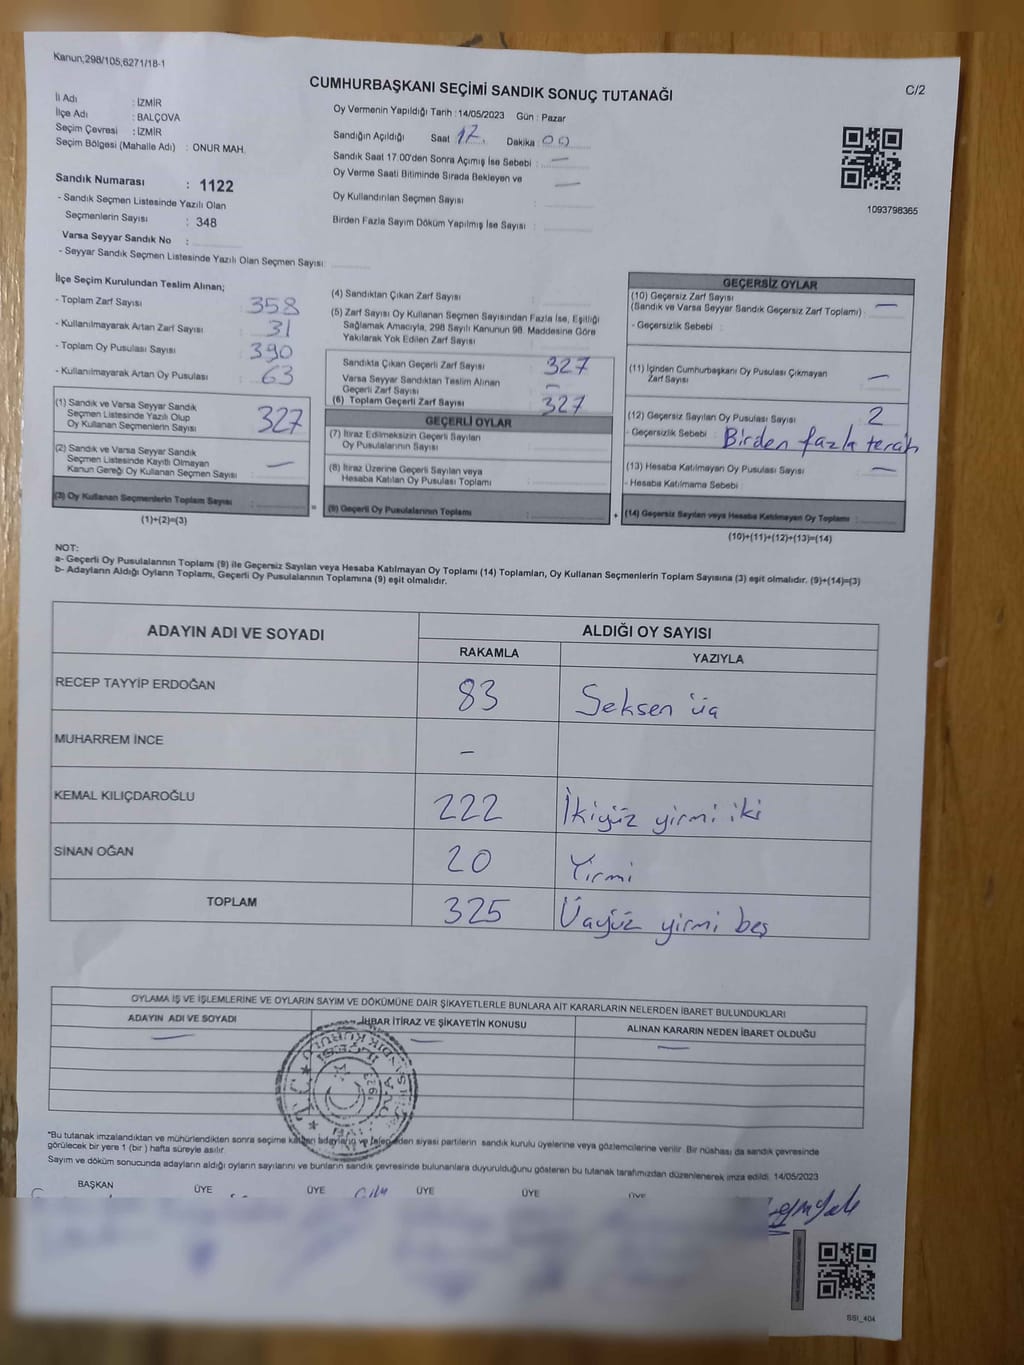 Kanun,298/105,6271/18-1
CUMHURBAŞKANI SEÇİMİ SANDIK SONUÇ TUTANAĞI
C/2
İli Adı : İZMİR
İlçe Adı : BALÇOVA
Seçim Çevresi : İZMİR
Seçim Bölgesi (Mahalle Adı) : ONUR MAH.
Sandık Numarası : 1122
- Sandık Seçmen Listesinde Yazılı Olan
Seçmenlerin Sayısı : 348
Varsa Seyyar Sandık No :
- Seyyar Sandık Seçmen Listesinde Yazılı Olan Seçmen Sayısı:
Oy Vermenin Yapıldığı Tarih : 14/05/2023 Gün : Pazar
Sandığın Açıldığı Saat 17. Dakika : 00
Sandık Saat 17.00'den Sonra Açımış İse Sebebi : —
Oy Verme Saati Bitiminde Sırada Bekleyen ve —
Oy Kullandırılan Seçmen Sayısı :
Birden Fazla Sayım Döküm Yapılmış İse Sayısı :
1093798365
İlçe Seçim Kurulundan Teslim Alınan;
- Toplam Zarf Sayısı : 358
- Kullanılmayarak Artan Zarf Sayısı : 31
- Toplam Oy Pusulası Sayısı : 390
- Kullanılmayarak Artan Oy Pusulası : 63
(1) Sandık ve Varsa Seyyar Sandık
Seçmen Listesinde Yazılı Olup
Oy Kullanan Seçmenlerin Sayısı : 327
(2) Sandık ve Varsa Seyyar Sandık
Seçmen Listesinde Kayıtlı Olmayan
Kanun Gereği Oy Kullanan Seçmen Sayısı : —
(3) Oy Kullanan Seçmenlerin Toplam Sayısı :
(1)+(2)=(3)
(4) Sandıktan Çıkan Zarf Sayısı :
(5) Zarf Sayısı Oy Kullanan Seçmen Sayısından Fazla İse, Eşitliği
Sağlamak Amacıyla, 298 Sayılı Kanunun 98. Maddesine Göre
Yakılarak Yok Edilen Zarf Sayısı :
Sandıkta Çıkan Geçerli Zarf Sayısı : 327
Varsa Seyyar Sandıktan Teslim Alınan
Geçerli Zarf Sayısı : —
(6) Toplam Geçerli Zarf Sayısı : 327
GEÇERLİ OYLAR
(7) İtiraz Edilmeksizin Geçerli Sayılan
Oy Pusulalarının Sayısı :
(8) İtiraz Üzerine Geçerli Sayılan veya
Hesaba Katılan Oy Pusulası Toplamı :
= (9) Geçerli Oy Pusulalarının Toplamı :
GEÇERSİZ OYLAR
(10) Geçersiz Zarf Sayısı
(Sandık ve Varsa Seyyar Sandık Geçersiz Zarf Toplamı) : —
- Geçersizlik Sebebi :
(11) İçinden Cumhurbaşkanı Oy Pusulası Çıkmayan
Zarf Sayısı : —
(12) Geçersiz Sayılan Oy Pusulası Sayısı : 2
- Geçersizlik Sebebi : Birden fazla tercih
(13) Hesaba Katılmayan Oy Pusulası Sayısı : —
- Hesaba Katılmama Sebebi :
+ (14) Geçersiz Sayılan veya Hesaba Katılmayan Oy Toplamı :
(10)+(11)+(12)+(13)=(14)
NOT:
a- Geçerli Oy Pusulalarının Toplamı (9) ile Geçersiz Sayılan veya Hesaba Katılmayan Oy Toplamı (14) Toplamları, Oy Kullanan Seçmenlerin Toplam Sayısına (3) eşit olmalıdır. (9)+(14)=(3)
b- Adayların Aldığı Oyların Toplamı, Geçerli Oy Pusulalarının Toplamına (9) eşit olmalıdır.
ADAYIN ADI VE SOYADI ALDIĞI OY SAYISI
RAKAMLA YAZIYLA
RECEP TAYYİP ERDOĞAN 83 Seksen üç
MUHARREM İNCE –
KEMAL KILIÇDAROĞLU 222 İkiyüz yirmi iki
SİNAN OĞAN 20 Yirmi
TOPLAM 325 Üçyüz yirmi beş
OYLAMA İŞ VE İŞLEMLERİNE VE OYLARIN SAYIM VE DÖKÜMÜNE DAİR ŞİKAYETLERLE BUNLARA AİT KARARLARIN NELERDEN İBARET BULUNDUKLARI
ADAYIN ADI VE SOYADI İHBAR İTİRAZ VE ŞİKAYETİN KONUSU ALINAN KARARIN NEDEN İBARET OLDUĞU
— — —
T.C.
1923
*Bu tutanak imzalandıktan ve mühürlendikten sonra seçime katılan adayların ve talep eden siyasi partilerin sandık kurulu üyelerine veya gözlemcilerine verilir. Bir nüshası da sandık çevresinde
görülecek bir yere 1 (bir) hafta süreyle asılır.
Sayım ve döküm sonucunda adayların aldığı oyların sayılarını ve bunların sandık çevresinde bulunanlara duyurulduğunu gösteren bu tutanak tarafımızdan düzenlenerek imza edildi. 14/05/2023
BAŞKAN ÜYE ÜYE ÜYE ÜYE ÜYE
SSI_404